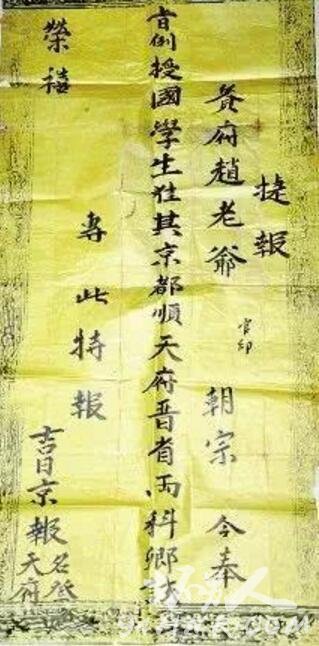 捷報
貴府趙老爺 官印 朝宗 今奉
旨例授國學生准其京都順天府晋省両科鄉試
榮禧
專此特報
吉日京報
天府